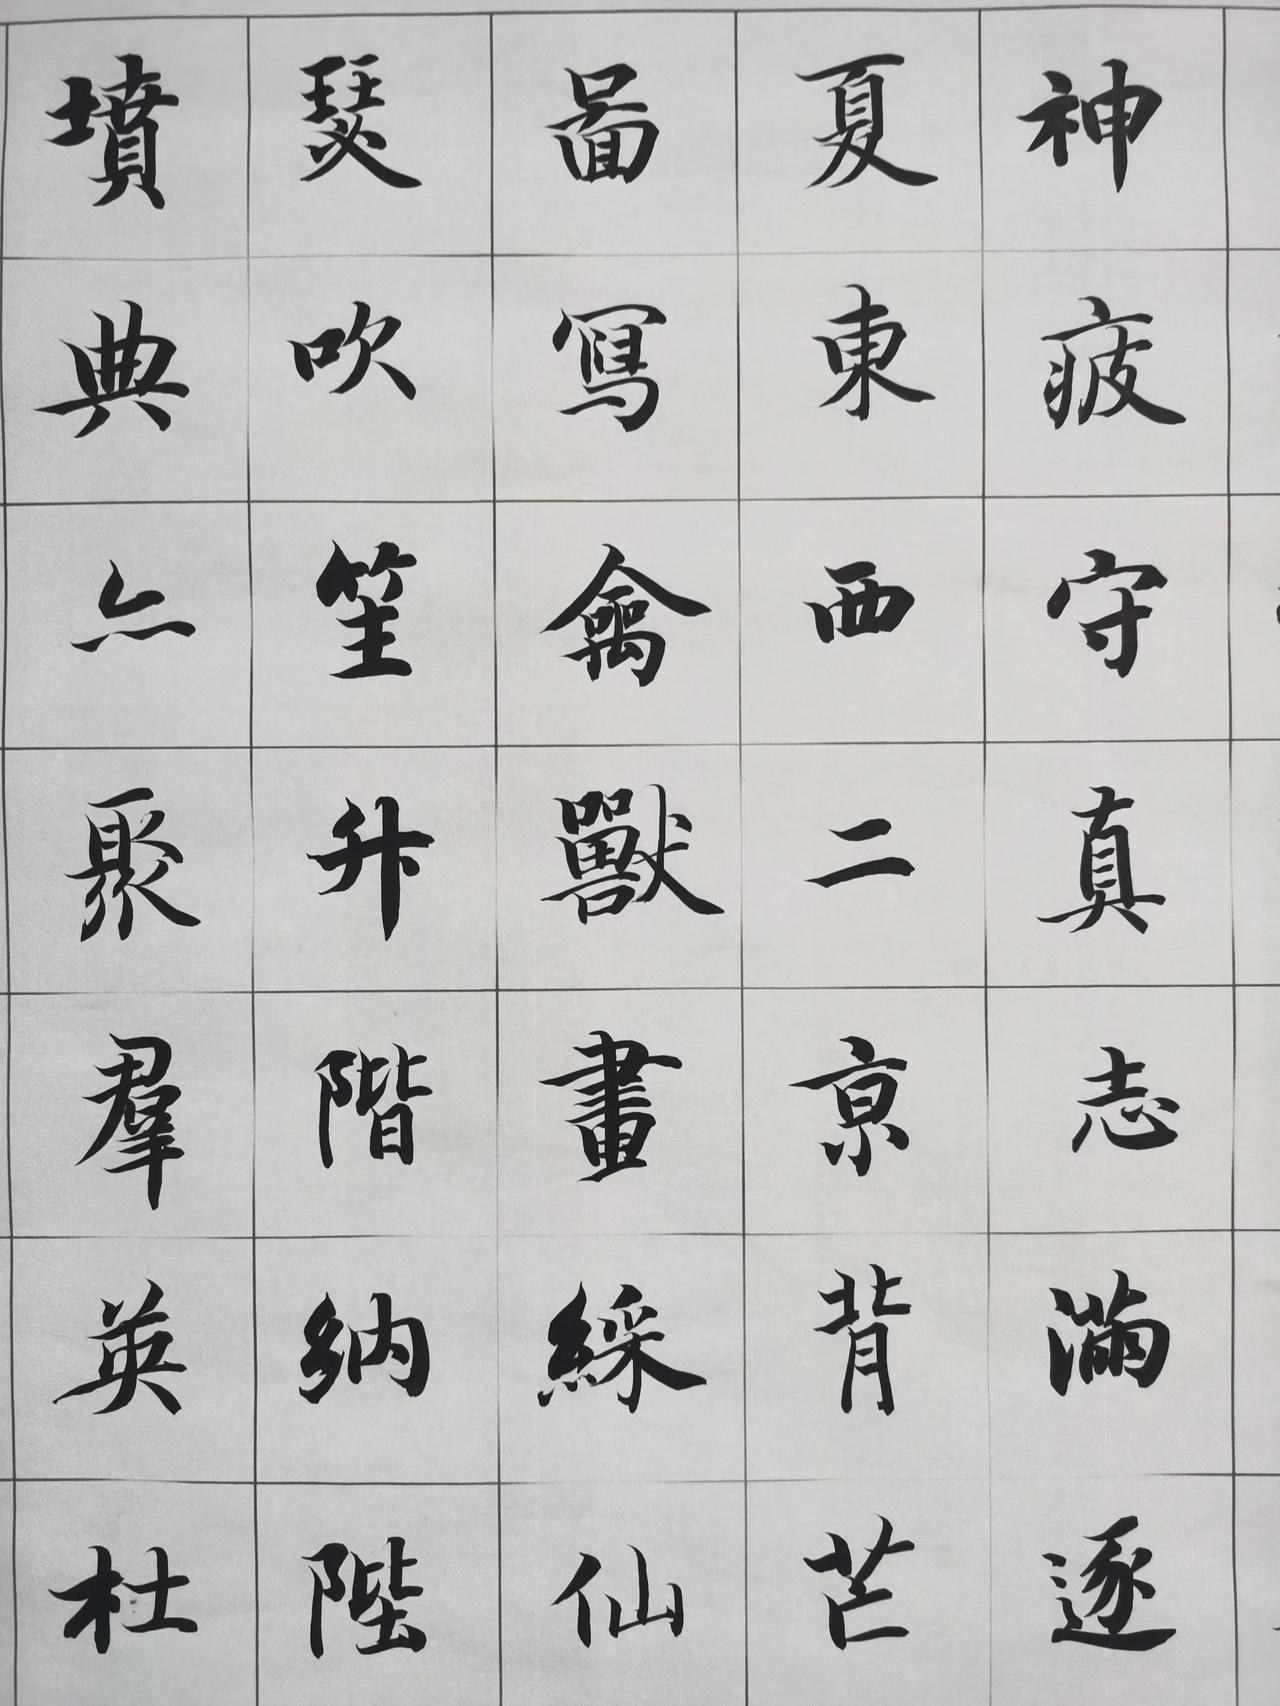 神疲守真志滿逐
夏東西二京背芒
啚寫禽獸畫綵仙
瑟吹笙升階納陛
墳典亦聚羣英杜